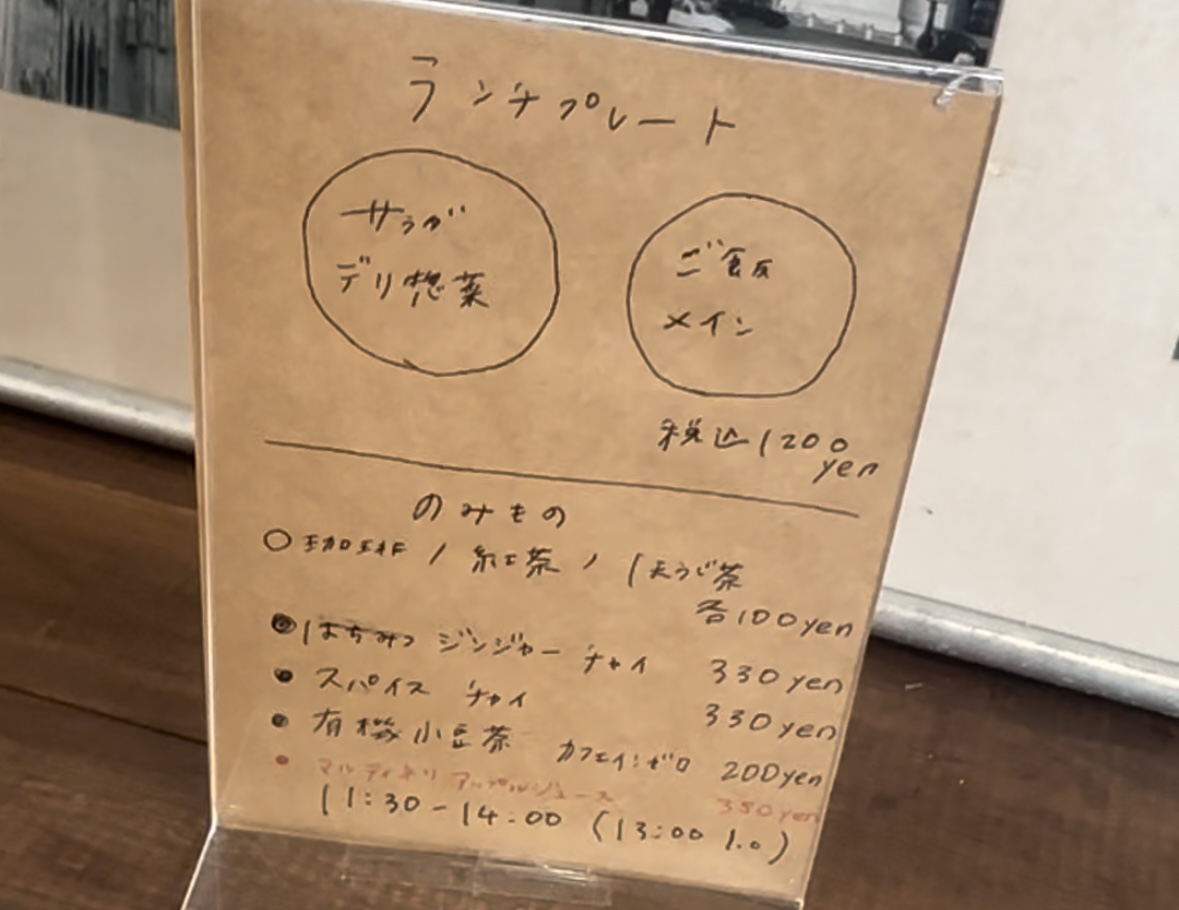 ランチプレート
サラダ
デリ惣菜
ご飯
メイン
税込1200
yen
のみもの
○珈琲 / 紅茶 / ほうじ茶
各100yen
●はちみつ ジンジャー チャイ 330yen
●スパイス チャイ 330yen
●有機小豆茶 カフェインゼロ 200yen
●マルティネリ アップルジュース 350yen
11:30-14:00 (13:00 l.o)